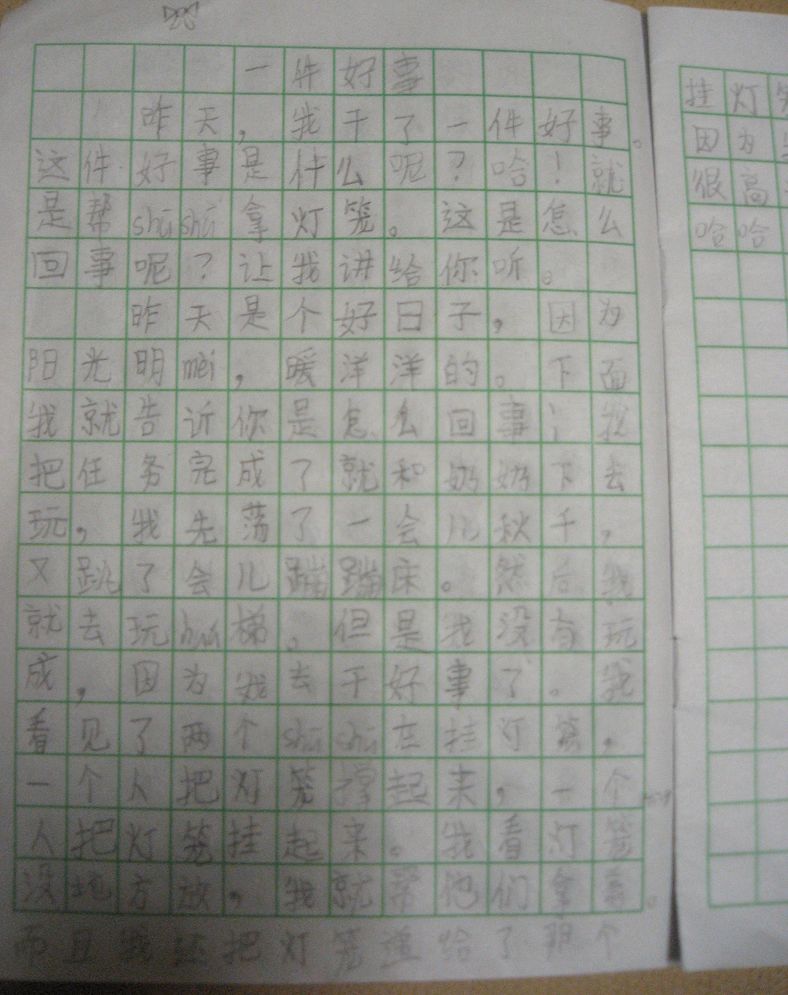 一件好事
昨天，我干了一件好事。
这件好事是什么呢？哈！就
是帮shūshū拿灯笼。这是怎么
回事呢？让我讲给你听。
昨天是个好日子，因为
阳光明mèi，暖洋洋的。下面
我就告诉你是怎么回事！我
把任务完成了就和奶奶下去
玩，我先荡了一会儿秋千，
又跳了会儿蹦蹦床。然后我
就去玩huá梯。但是我没有玩
成，因为我去干好事了。我
看见了两个shūshū在挂灯笼，
一个人把灯笼撑起来，一个
人把灯笼挂起来。我看灯笼
没地方放，我就帮他们拿着。
而且我还把灯笼递给了那个
挂灯笼
因为
很高
哈哈